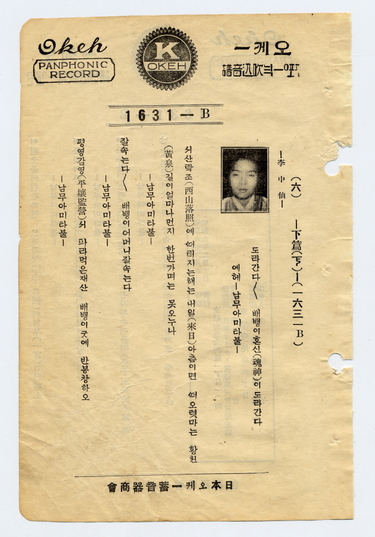 Okeh
PANPHONIC
RECORD
K
OKEH
오케ー
1631-B
(六) ー下篇(下)ー(一六三一B)
ー李中仙ー
도라간다〱 배뱅이혼신(魂神)이 도라간다
예헤ー남무아미타불ー
서산락조(西山落照)에 떠러지는해는 내일(來日)아츰이면 떠오렷마는 황천
(黃泉)길이얼마나먼지 한번가며는 못오누나
ー남무아미타불ー
잘속는다〱 배뱅이어머니잘속는다
ー남무아미타불ー
평양감영(平壤監營)늬 파라먹은재산 배뱅이굿에 반봉창하오
ー남무아미타불ー
日本오케ー蓄音器商會